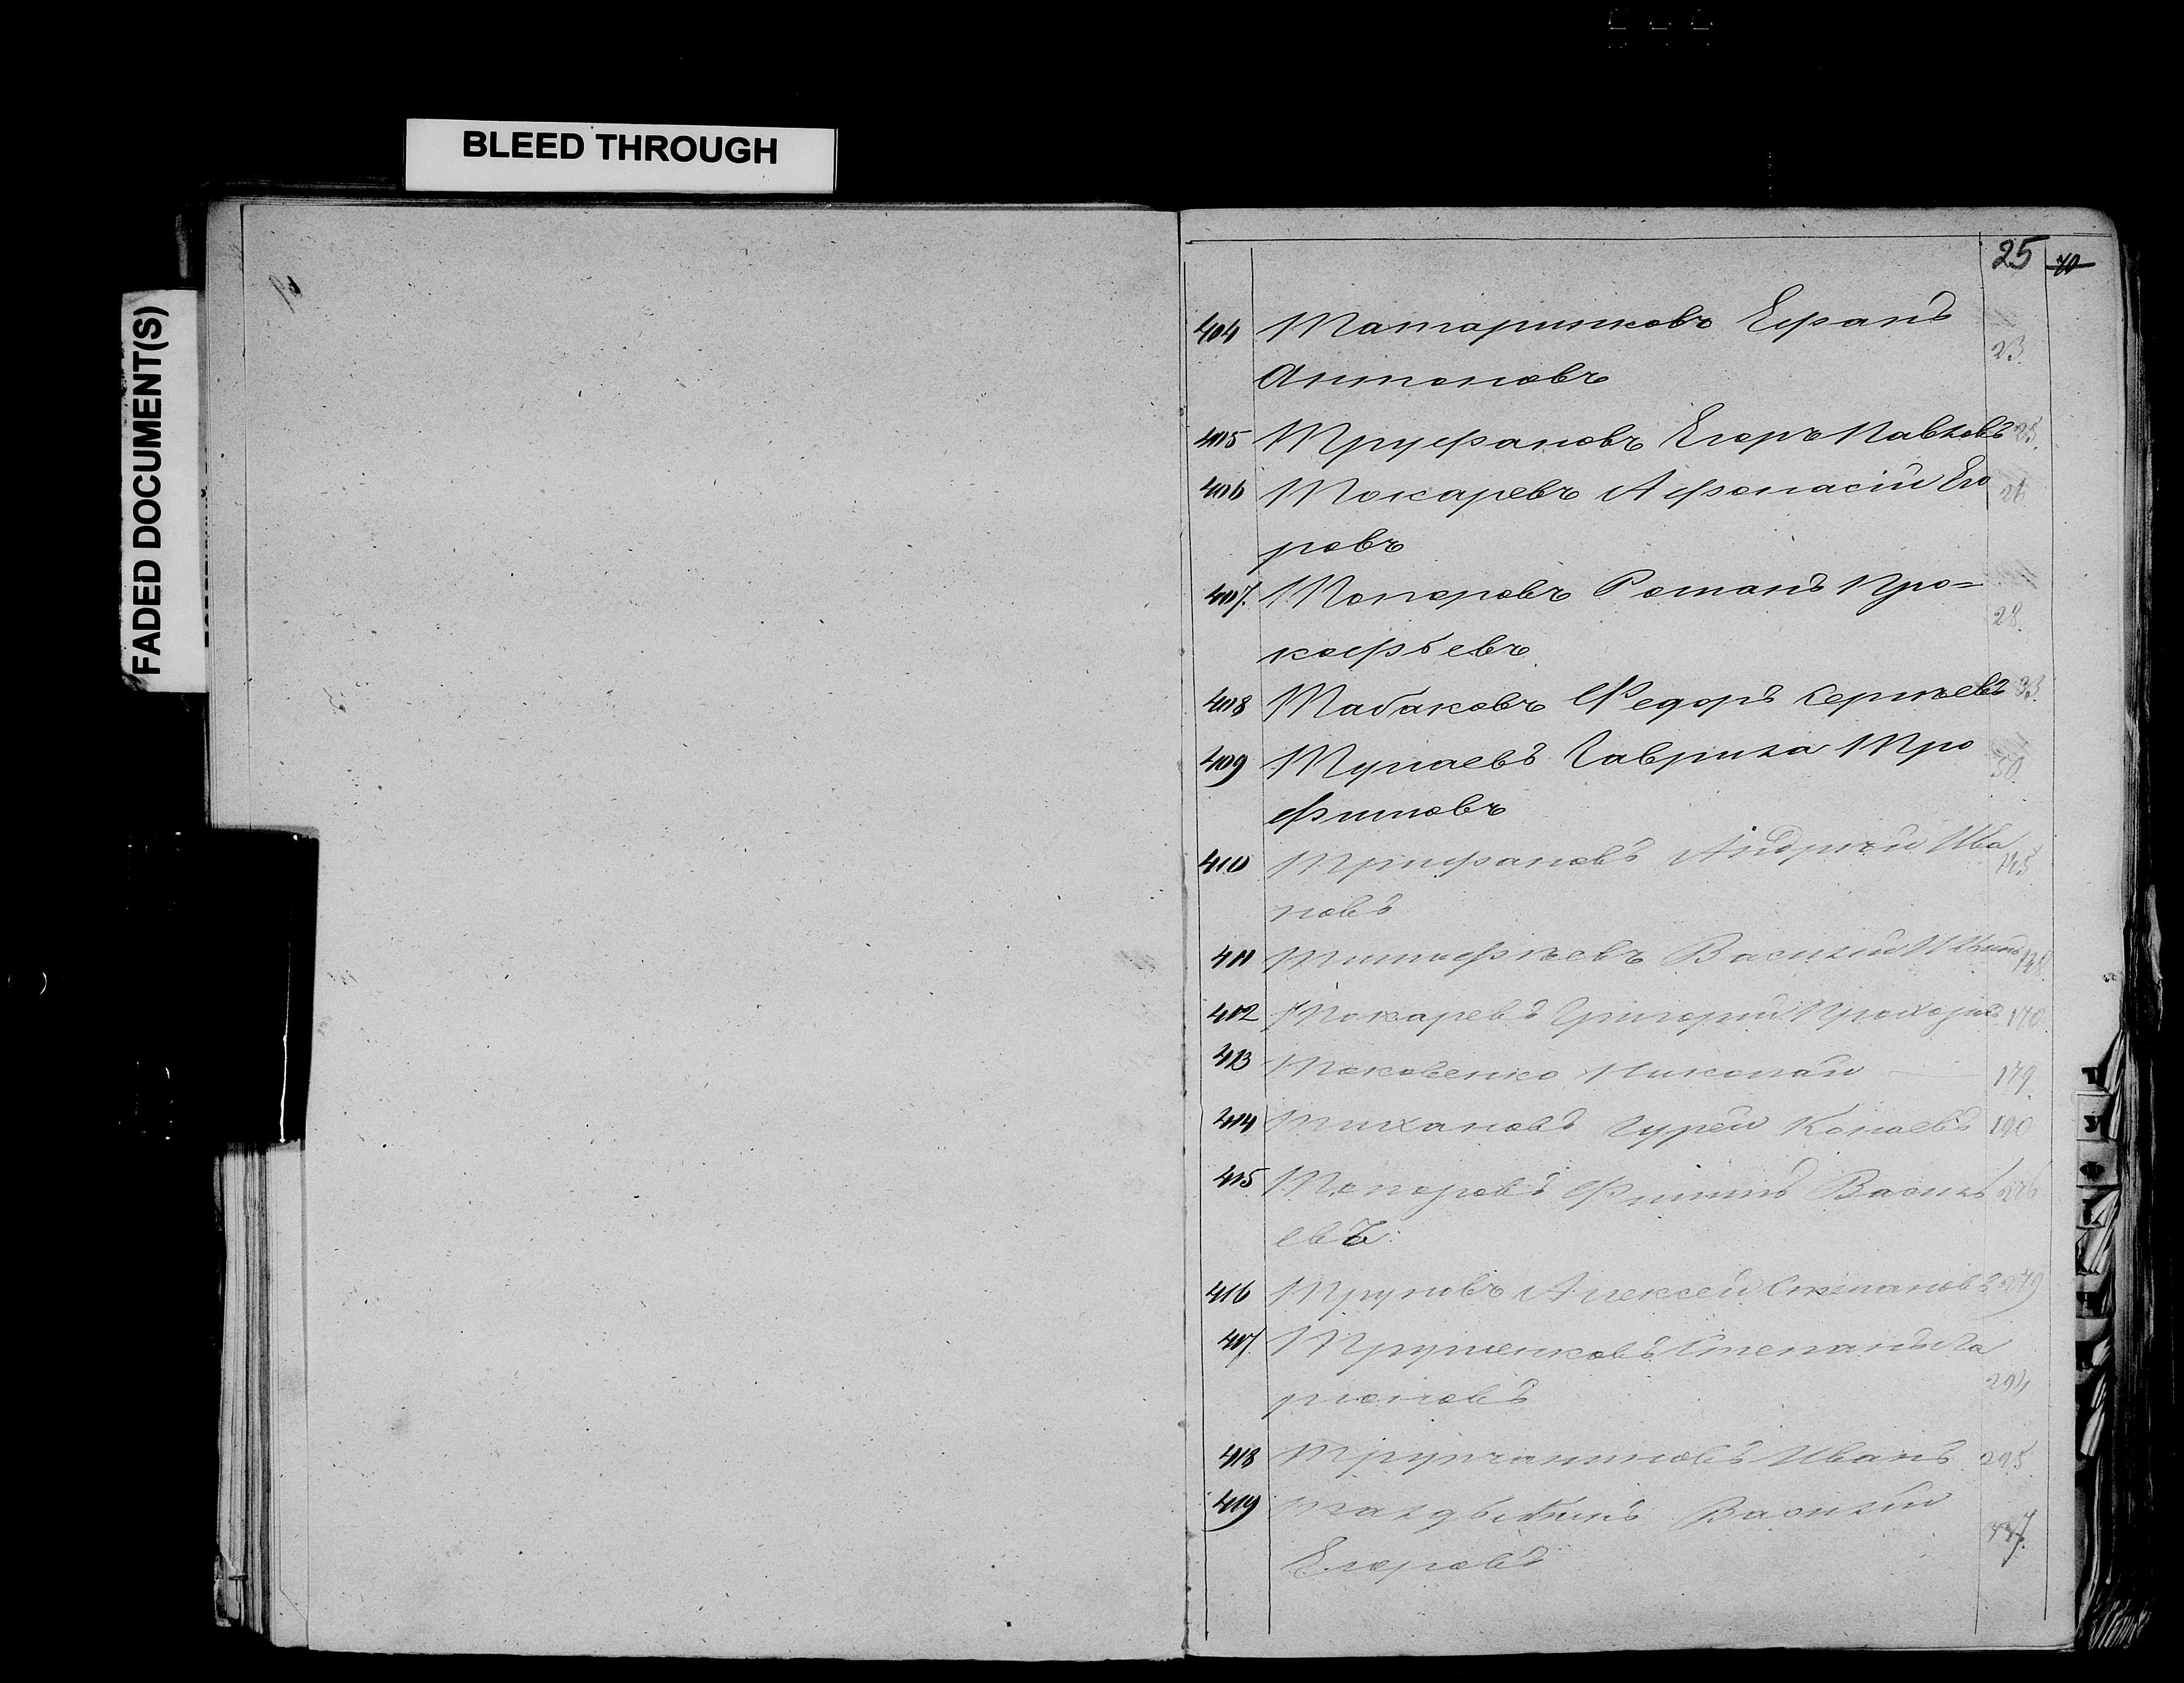 BLEED THROUGH
FADED DOCUMENT(S)
25 70
404 Татаринковъ Ефанъ 23.
Антоновъ
405 Труфановъ Егоръ Павловъ 25.
406 Токаревъ Афонасій Его 26
ровъ
407. Топоровъ Романъ Про=
кофьевъ 28.
408 Табаковъ Федоръ Сергѣевъ 33.
409 Тупаевъ Гаврила Тро 50.
фимовъ
410 Трифановъ Андрѣй Ива 145
новъ
411 Тимофѣевъ Василій 148.
412 Токаревъ Григорій Прохоровъ 170.
413 Токовенко Николай — 179.
414 Тихановъ Гурей 190
415 Топоровъ Филипъ Василь 276
евъ.
416 Труновъ Алексей Степановъ 279
417. Трушенковъ Степанъ Ла
ріоновъ 294
418 Иванъ 295.
419 Василій
Егоровъ 337.
Т
У
Ф